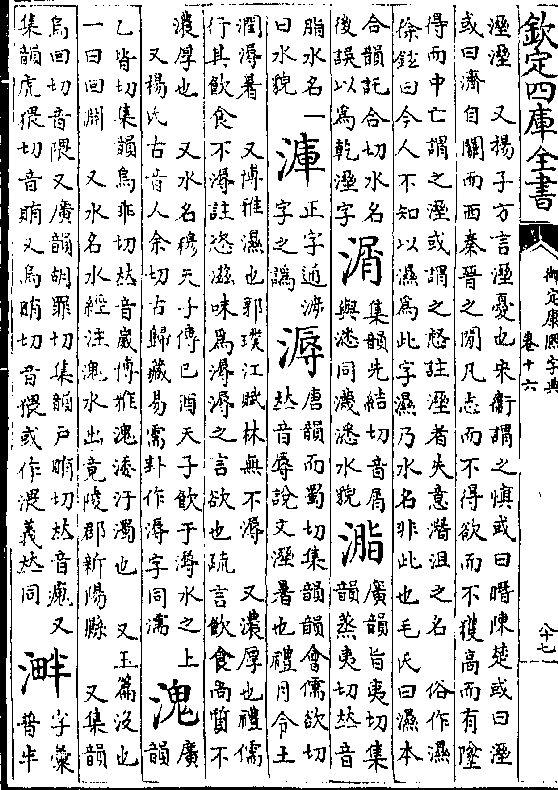 欽定四庫全書
御定康熙字典
卷十六
六十七
溼溼　又揚子方言溼憂也宋衛謂之慎或曰䁆陳楚或曰溼
或曰濟自關而西秦晉之閒凡志而不得欲而不獲高而有墜
得而中亡謂之溼或謂之惄註溼者失意潛沮之名　俗作濕
徐鉉曰今人不知以濕為此字濕乃水名非此也毛氏曰濕本
合韻託合切水名
後誤以為乾溼字
㴮
集韻先結切音屑
與㳿同瀎㳿水貌
㴯
廣韻旨夷切集
韻蒸夷切𠀤音
脂水名一
曰水貌
正字通
字之譌
溽
唐韻而蜀切集韻韻會儒欲切
𠀤音辱說文溼暑也禮月令土
潤溽暑　又博雅濕也郭璞江賦林無不溽　又濃厚也禮儒
行其飲食不溽註恣滋味為溽溽之言欲也疏言飲食尚質不
濃厚也　又水名穆天子傳己酉天子飲于溽水之上
又楊氏古音人余切古歸藏易需卦作溽字同濡
溾
廣
韻
乙皆切集韻烏乖切𠀤音崴博雅溾涹汙濁也　又玉篇沒也
一曰回淵　又水名水經注溾水出竟陵郡新陽縣　又集韻
烏回切音隈又廣韻胡罪切集韻戸賄切𠀤音瘣又
集韻虎猥切音賄又烏賄切音猥或作渨義𠀤同
溿
字彙
普半